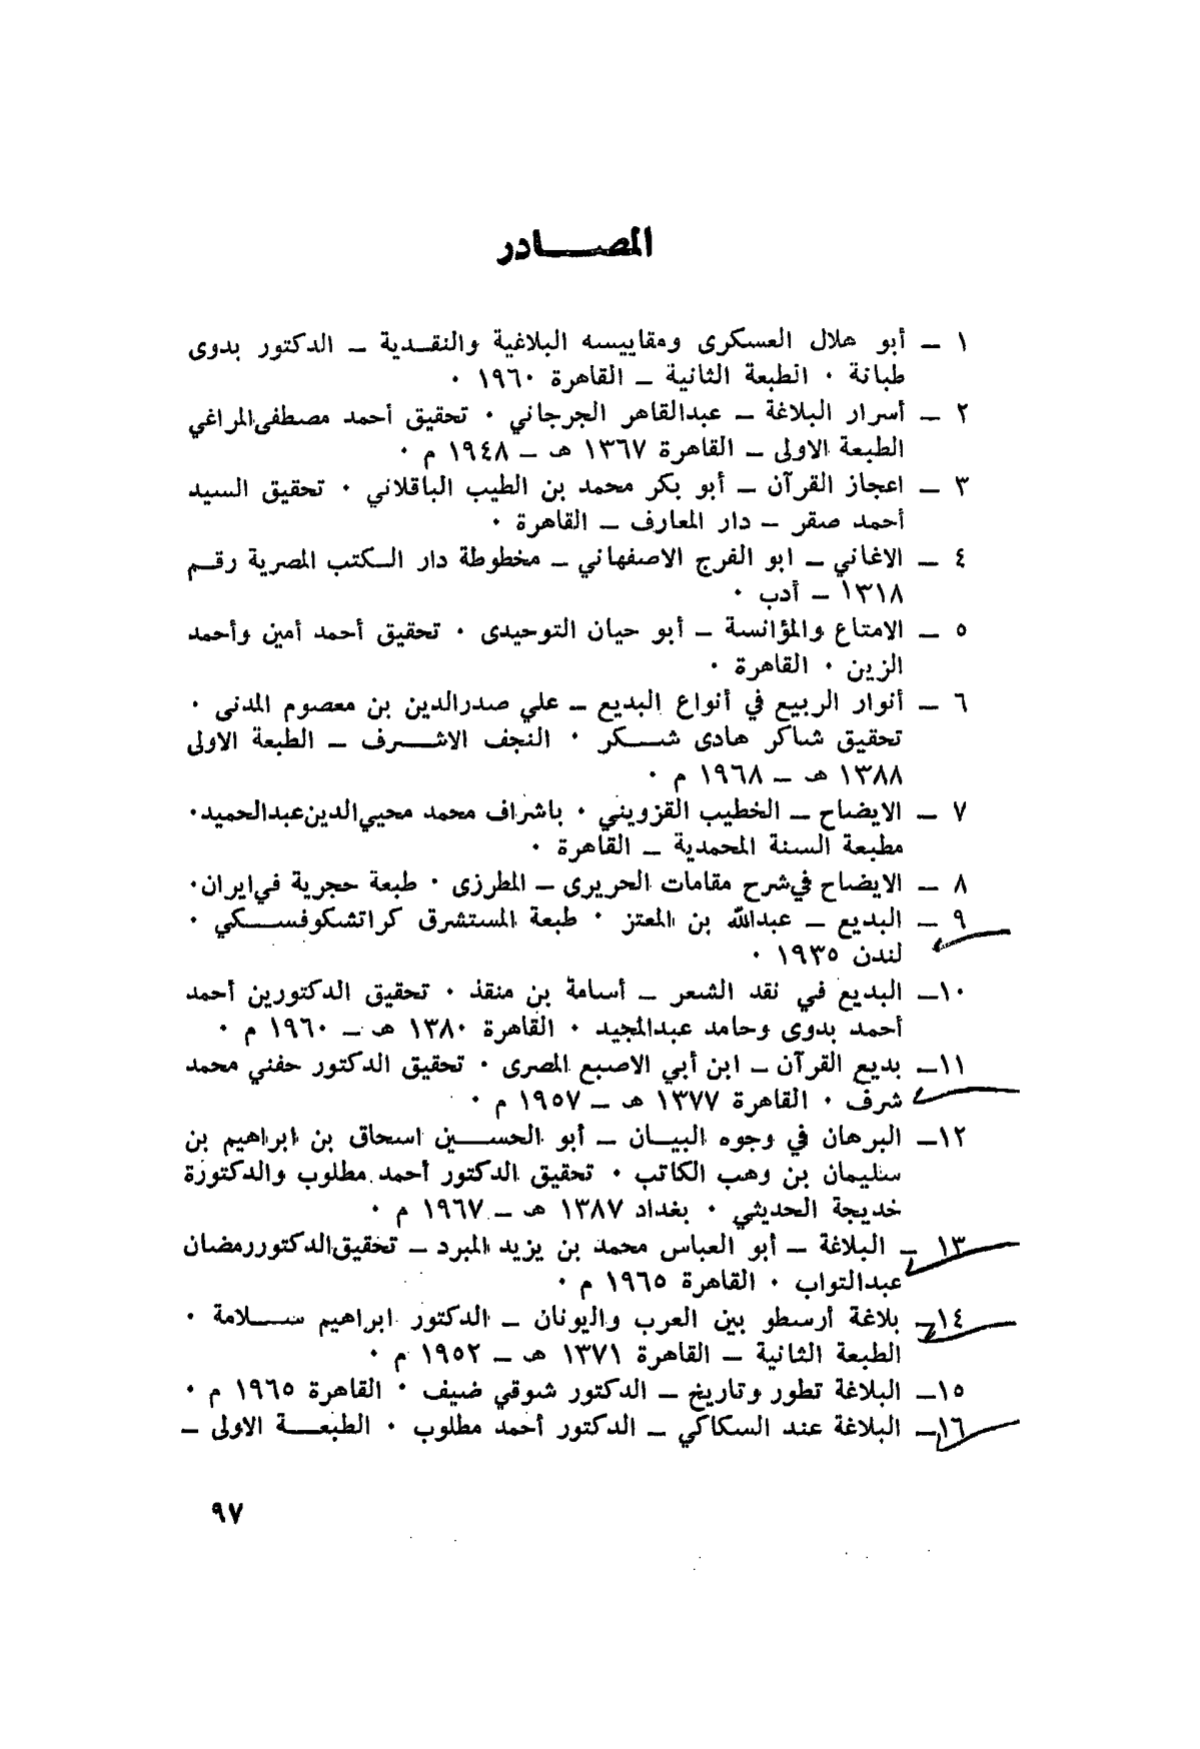 المصــــادر
١ – أبو هلال العسكرى ومقاييسه البلاغية والنقــدية – الدكتور بدوى
طبانة ٠ الطبعة الثانية – القاهرة ١٩٦٠ ٠
٢ – أسرار البلاغة – عبدالقاهر الجرجاني ٠ تحقيق أحمد مصطفى المراغي
الطبعة الاولى – القاهرة ١٣٦٧ هـ – ١٩٤٨ م ٠
٣ – اعجاز القرآن – أبو بكر محمد بن الطيب الباقلاني ٠ تحقيق السيد
أحمد صقر – دار المعارف – القاهرة ٠
٤ – الاغاني – ابو الفرج الاصفهاني – مخطوطة دار الـكتب المصرية رقــم
١٣١٨ – أدب ٠
٥ – الامتاع والمؤانسة – أبو حيان التوحيدى ٠ تحقيق أحمد أمين وأحمد
الزين ٠ القاهرة ٠
٦ – أنوار الربيع في أنواع البديع – علي صدرالدين بن معصوم المدنى ٠
تحقيق شاكر هادى شــكر ٠ النجف الاشــرف – الطبعة الاولى
١٣٨٨ هـ – ١٩٦٨ م ٠
٧ – الايضاح – الخطيب القزويني ٠ باشراف محمد محيي الدين عبدالحميد ٠
مطبعة السنة المحمدية – القاهرة ٠
٨ – الايضاح في شرح مقامات الحريرى – المطرزى ٠ طبعة حجرية في ايران ٠
٩ – البديع – عبدالله بن المعتز ٠ طبعة المستشرق كراتشكوفســكي ٠
لندن ١٩٣٥ ٠
١٠– البديع في نقد الشعر – أسامة بن منقذ ٠ تحقيق الدكتورين أحمد
أحمد بدوى وحامد عبدالمجيد ٠ القاهرة ١٣٨٠ هـ – ١٩٦٠ م ٠
١١– بديع القرآن – ابن أبي الاصبع المصرى ٠ تحقيق الدكتور حفني محمد
شرف ٠ القاهرة ١٣٧٧ هـ – ١٩٥٧ م ٠
١٢– البرهان في وجوه البيــان – أبو الحســين اسحاق بن ابراهيم بن
سليمان بن وهب الكاتب ٠ تحقيق الدكتور أحمد مطلوب والدكتورة
خديجة الحديثي ٠ بغداد ١٣٨٧ هـ – ١٩٦٧ م ٠
١٣ – البلاغة – أبو العباس محمد بن يزيد المبرد – تحقيق الدكتور رمضان
عبدالتواب ٠ القاهرة ١٩٦٥ م ٠
١٤– بلاغة أرسطو بين العرب واليونان – الدكتور ابراهيم ســلامة ٠
الطبعة الثانية – القاهرة ١٣٧١ هـ – ١٩٥٢ م ٠
١٥– البلاغة تطور وتاريخ – الدكتور شوقي ضيف ٠ القاهرة ١٩٦٥ م ٠
١٦– البلاغة عند السكاكي – الدكتور أحمد مطلوب ٠ الطبعــة الاولى –
٩٧